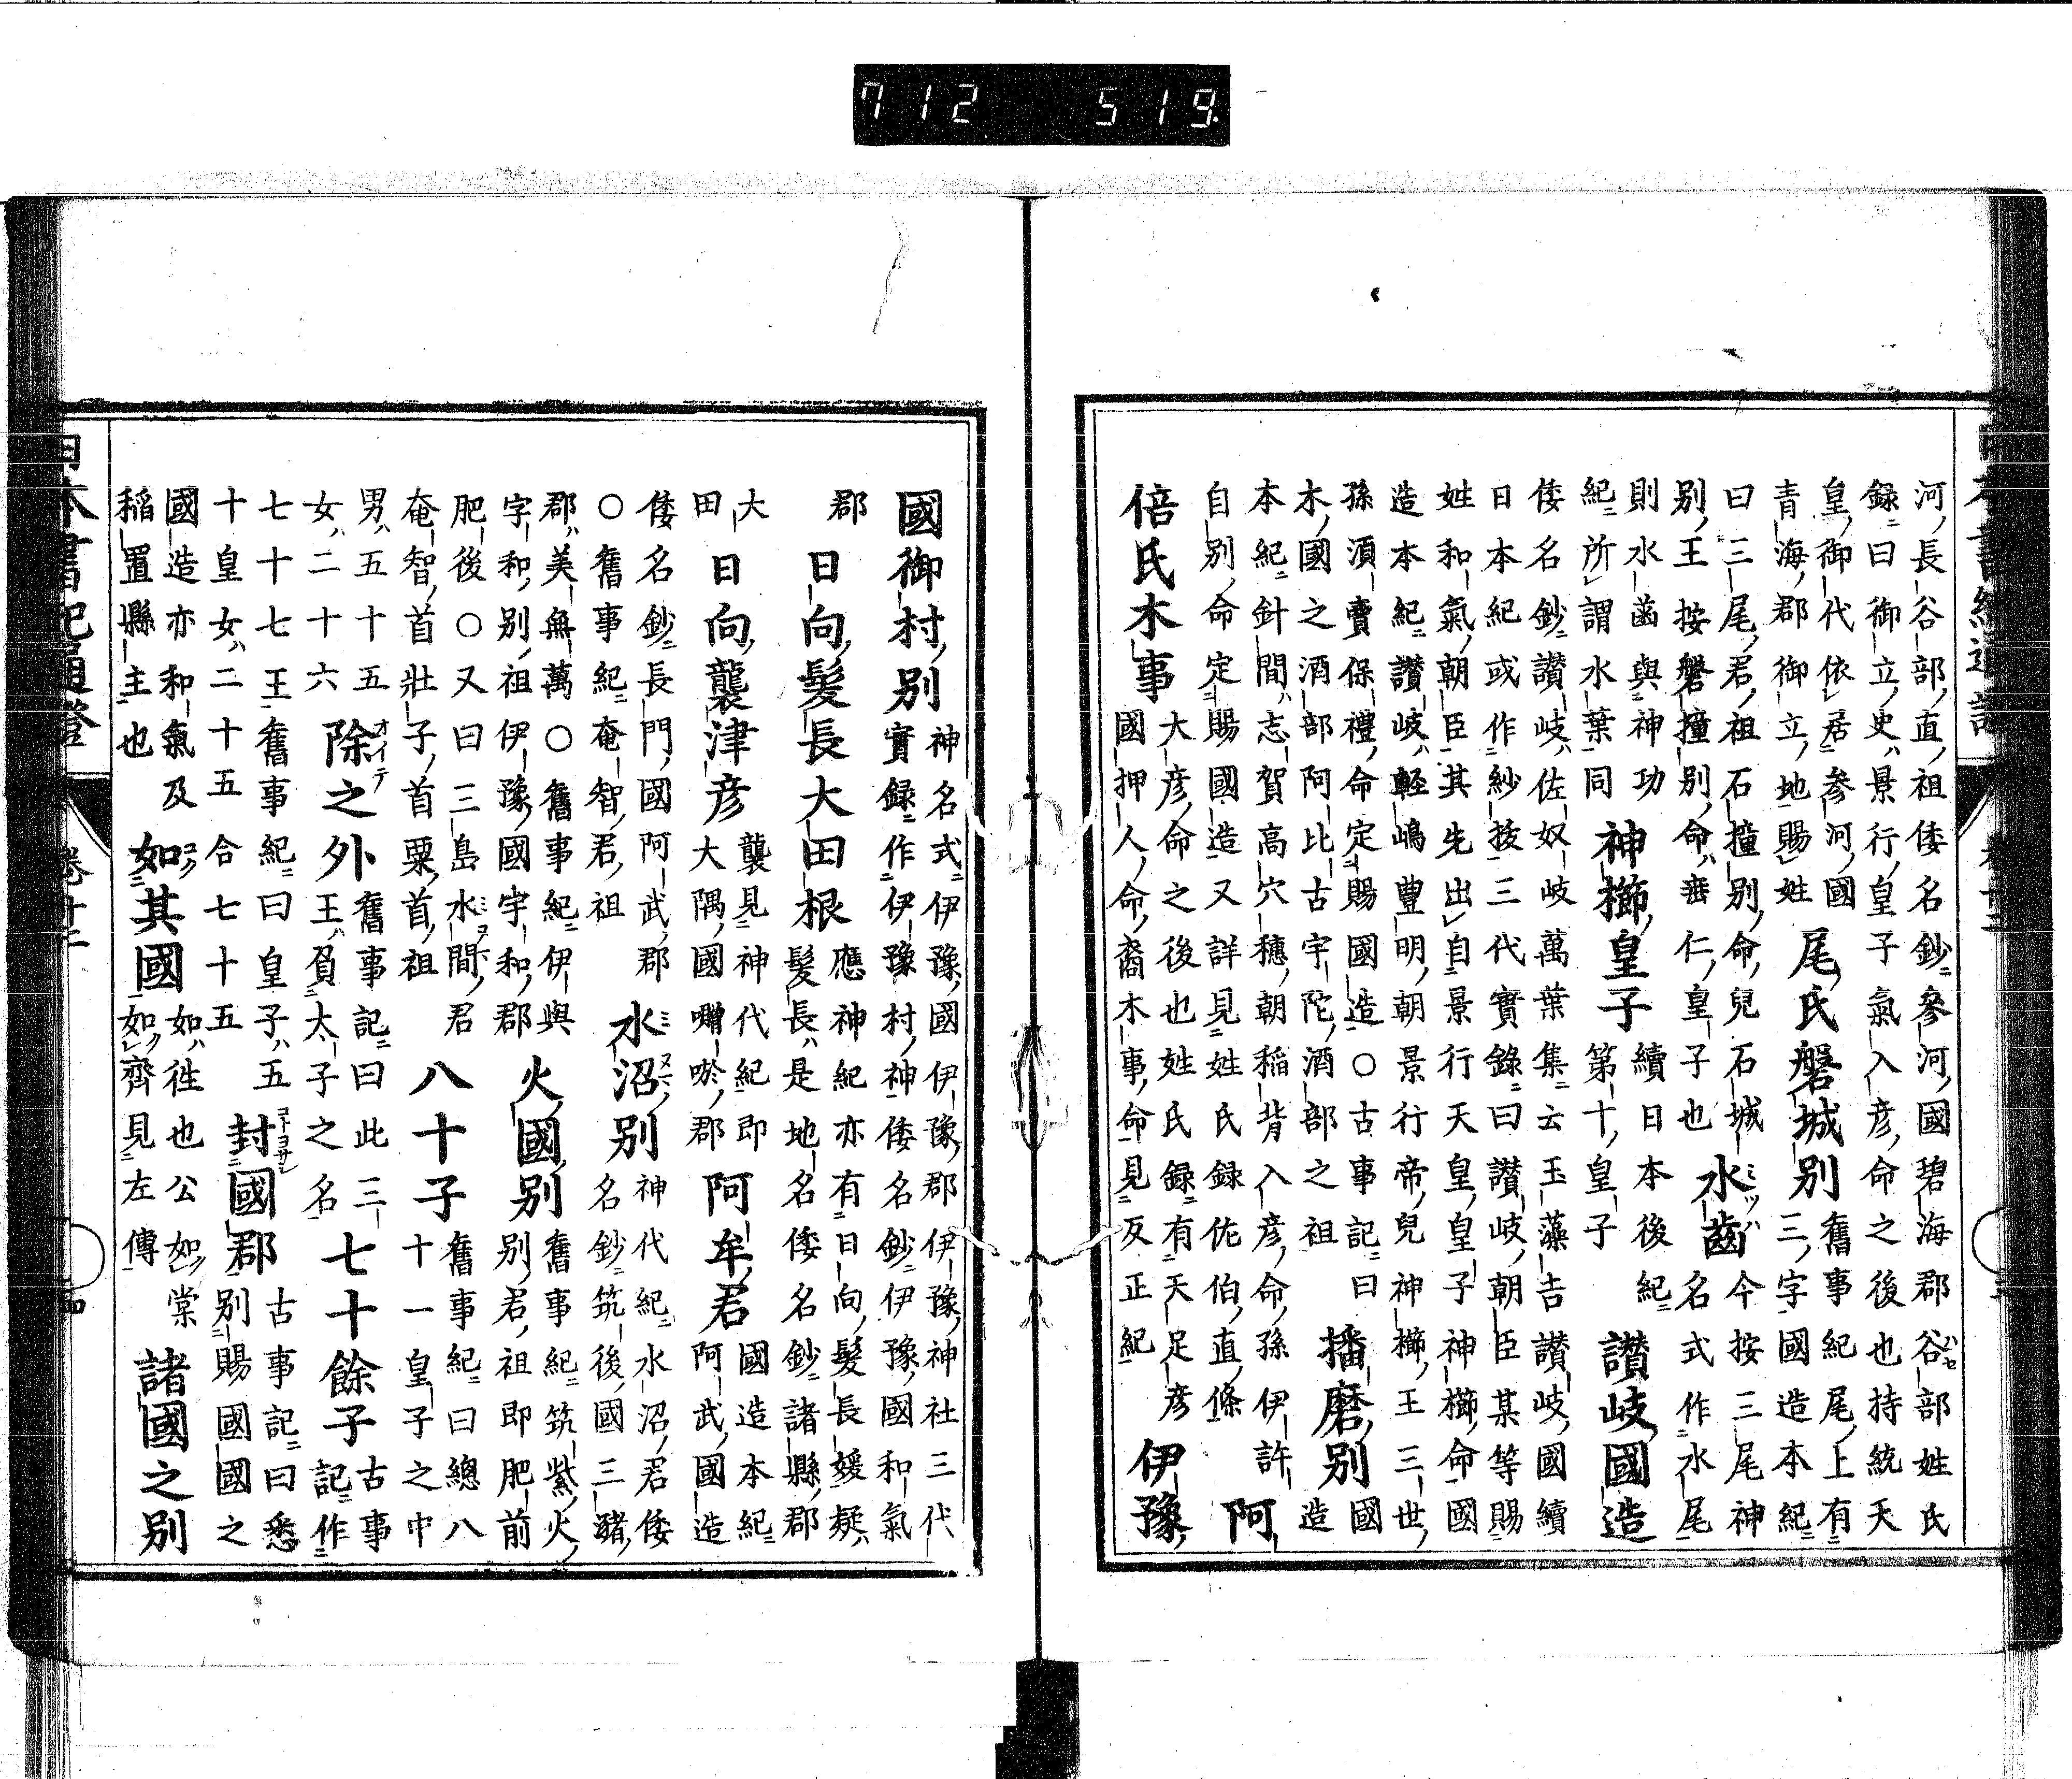 河長谷部直祖倭名鈔參河國碧海郡谷部姓氏
録曰御立史景行皇子氣入彦命之後也持統天
皇御代依居参河國
青海郡御立地賜姓
尾氏磐城別
舊事紀尾上有
三字國造本紀
曰三尾君祖石撞別命兒石城
別王按磐撞別命垂仁皇子也
水齒
ミツハ
今按三尾神
名式作水尾
則水齒與神功
紀所謂水葉同
神櫛皇子
續日本後紀
第十皇子
讃岐國造
倭名鈔讃岐佐奴岐萬葉集云玉藻吉讃岐國續
日本紀或作紗抜三代實錄曰讃岐朝臣某等賜
姓和氣朝臣其先出自景行天皇皇子神櫛命國
造本紀讃岐軽嶋豊明朝景行帝兒神櫛王三世
孫湏賣保禮命定賜國造○古事記曰
木國之酒部阿比古宇陀酒部之祖
播磨別
國
造
本紀針間志賀高穴穗朝稲背入彦命孫伊許
自別命定賜國造又詳見姓氏録佐伯直條
阿
倍氏木事
大彦命之後也姓氏録有天足彦
國押人命裔木事命見反正紀
伊豫
國御村別
神名式伊豫國伊豫郡伊豫神社三代
實録作伊豫村神倭名鈔伊豫國和氣
郡
日向髮長大田根
應神紀亦有日向髮長媛疑
髪長是地名倭名鈔諸縣郡
大
田
日向襲津彦
襲見神代紀即
大隅國囎唹郡
阿牟君
國造本紀
阿武國造
倭名鈔長門國阿武郡
○舊事紀奄智君祖
水沼別
ミヌマ
神代紀水沼君倭
名鈔筑後國三瀦
郡美無萬○舊事紀伊與
宇和別祖伊豫國宇和郡
火國別
舊事紀筑紫火
別君祖即肥前
肥後○又曰三島水間君
奄智首壯子首粟首祖
八十子
舊事紀曰總八
十一皇子之中
男五十五
女二十六
除之外
オイテ
舊事記曰此三
王負太子之名
七十餘子
古事
記作
七十七王舊事紀曰皇子五
十皇女二十五合七十五
封國郡
コトヨサシ
古事記曰悉
別賜國國之
國造亦和氣及
稲置縣主也
如其國
如往也公如棠
如齊見左傳
諸國之別
712 519